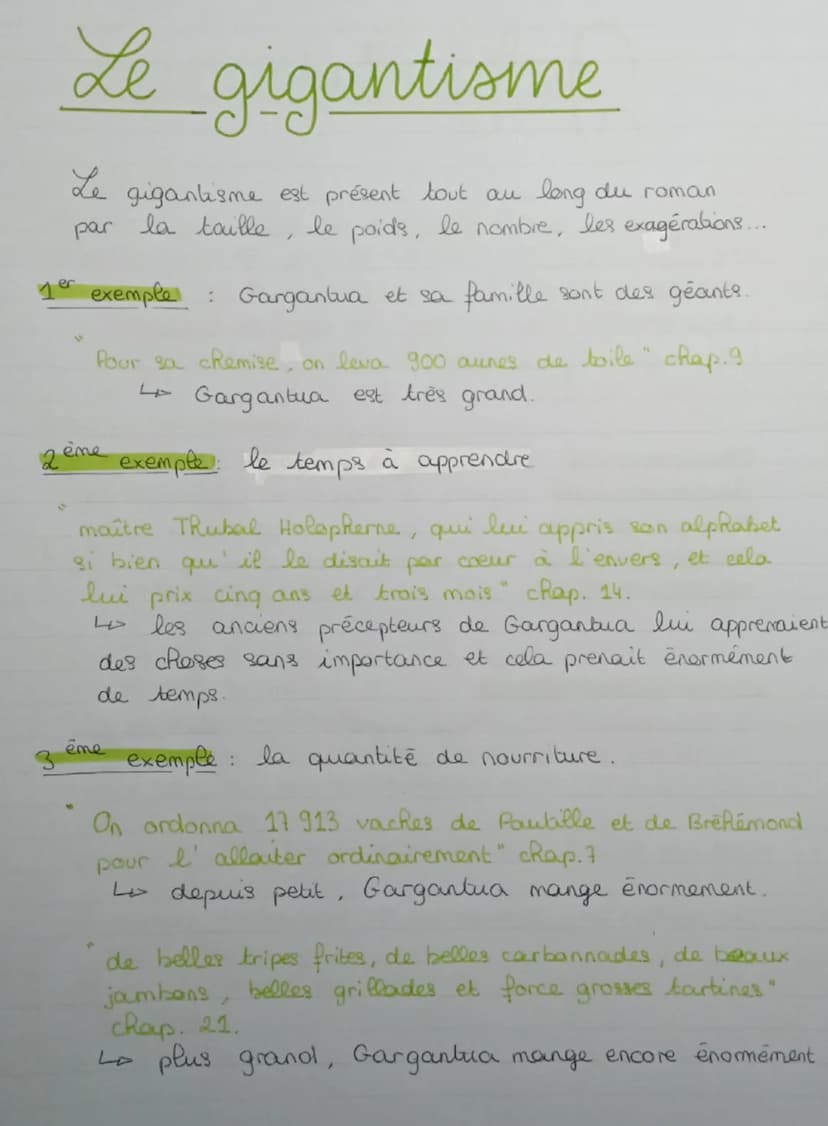 Le gigantisme
Le gigantisme est présent tout au long du roman
par la taille, le poids, le nombre, les exagérations...
1er exemple : Gargantua et sa famille sont des géants.
"Pour sa chemise, on leva 900 aunes de toile" chap.9
↳ Gargantua est très grand.
2ème exemple : le temps à apprendre
"maître TRubal Holopherne, qui lui appris son alphabet
si bien qu'il le disait par cœur à l'envers, et cela
lui prix cinq ans et trois mois" chap. 14.
↳ les anciens précepteurs de Gargantua lui apprenaient
des choses sans importance et cela prenait énormément
de temps.
3ème exemple : la quantité de nourriture.
"On ordonna 17 913 vaches de Pautille et de Bréhémond
pour l'allaiter ordinairement" chap.7
↳ depuis petit, Gargantua mange énormement.
"de belles tripes frites, de belles carbonnades, de beaux
jambons, belles grillades et force grosses tartines"
chap. 21.
↳ plus grand, Gargantua mange encore énormément